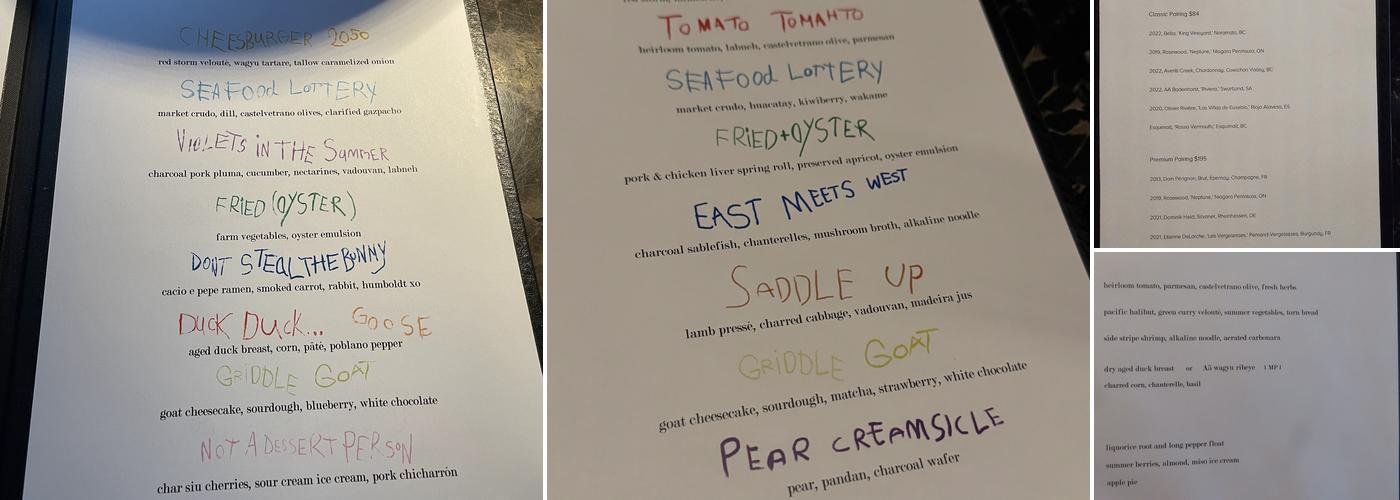 CHEESBURGER 2050
red storm velouté, wagyu tartare, tallow caramelized onion
SEAFood LOTTERY
market crudo, dill, castelvetrano olives, clarified gazpacho
VIOLETS iN THE SUMMER
charcoal pork pluma, cucumber, nectarines, vadouvan, labneh
FRIED (OYSTER)
farm vegetables, oyster emulsion
DONT STEAL THE BUNNY
cacio e pepe ramen, smoked carrot, rabbit, humboldt xo
DUCK DUCK... GOOSE
aged duck breast, corn, pâté, poblano pepper
GRIDDLE GOAT
goat cheesecake, sourdough, blueberry, white chocolate
NOT A DESSERT PERSON
char siu cherries, sour cream ice cream, pork chicharrón
TOMATO TOMAHTO
heirloom tomato, labneh, castelvetrano olive, parmesan
SEAFood LOTTERY
market crudo, huacatay, kiwiberry, wakame
FRIED+OYSTER
pork & chicken liver spring roll, preserved apricot, oyster emulsion
EAST MEETS WEST
charcoal sablefish, chanterelles, mushroom broth, alkaline noodle
SADDLE UP
lamb pressé, charred cabbage, vadouvan, madeira jus
GRiDDLE GOAT
goat cheesecake, sourdough, matcha, strawberry, white chocolate
PEAR CREAMSICLE
pear, pandan, charcoal wafer
Classic Pairing $84
2022, Bella, 'King Vineyard,' Naramata, BC
2019, Rosewood, 'Neptune,' Niagara Peninsula, ON
2022, Averill Creek, Chardonnay, Cowichan Valley, BC
2022, AA Badenhorst, 'Riviera,' Swartland, SA
2020, Olivier Rivière, 'Las Viñas de Eusebio,' Rioja Alavesa, ES
Esquimalt, 'Rosso Vermouth,' Esquimalt, BC
Premium Pairing $195
2013, Dom Pérignon, Brut, Épernay, Champagne, FR
2019, Rosewood, 'Neptune,' Niagara Peninsula, ON
2021, Dominik Held, Silvaner, Rheinhessen, DE
2021, Etienne DeLarche, 'Les Vergelesses,' Pernand-Vergelesses, Burgundy, FR
heirloom tomato, parmesan, castelvetrano olive, fresh herbs
pacific halibut, green curry velouté, summer vegetables, torn bread
side stripe shrimp, alkaline noodle, aerated carbonara
dry aged duck breast or A5 wagyu ribeye | MP |
charred corn, chanterelle, basil
liquorice root and long pepper float
summer berries, almond, miso ice cream
apple pie